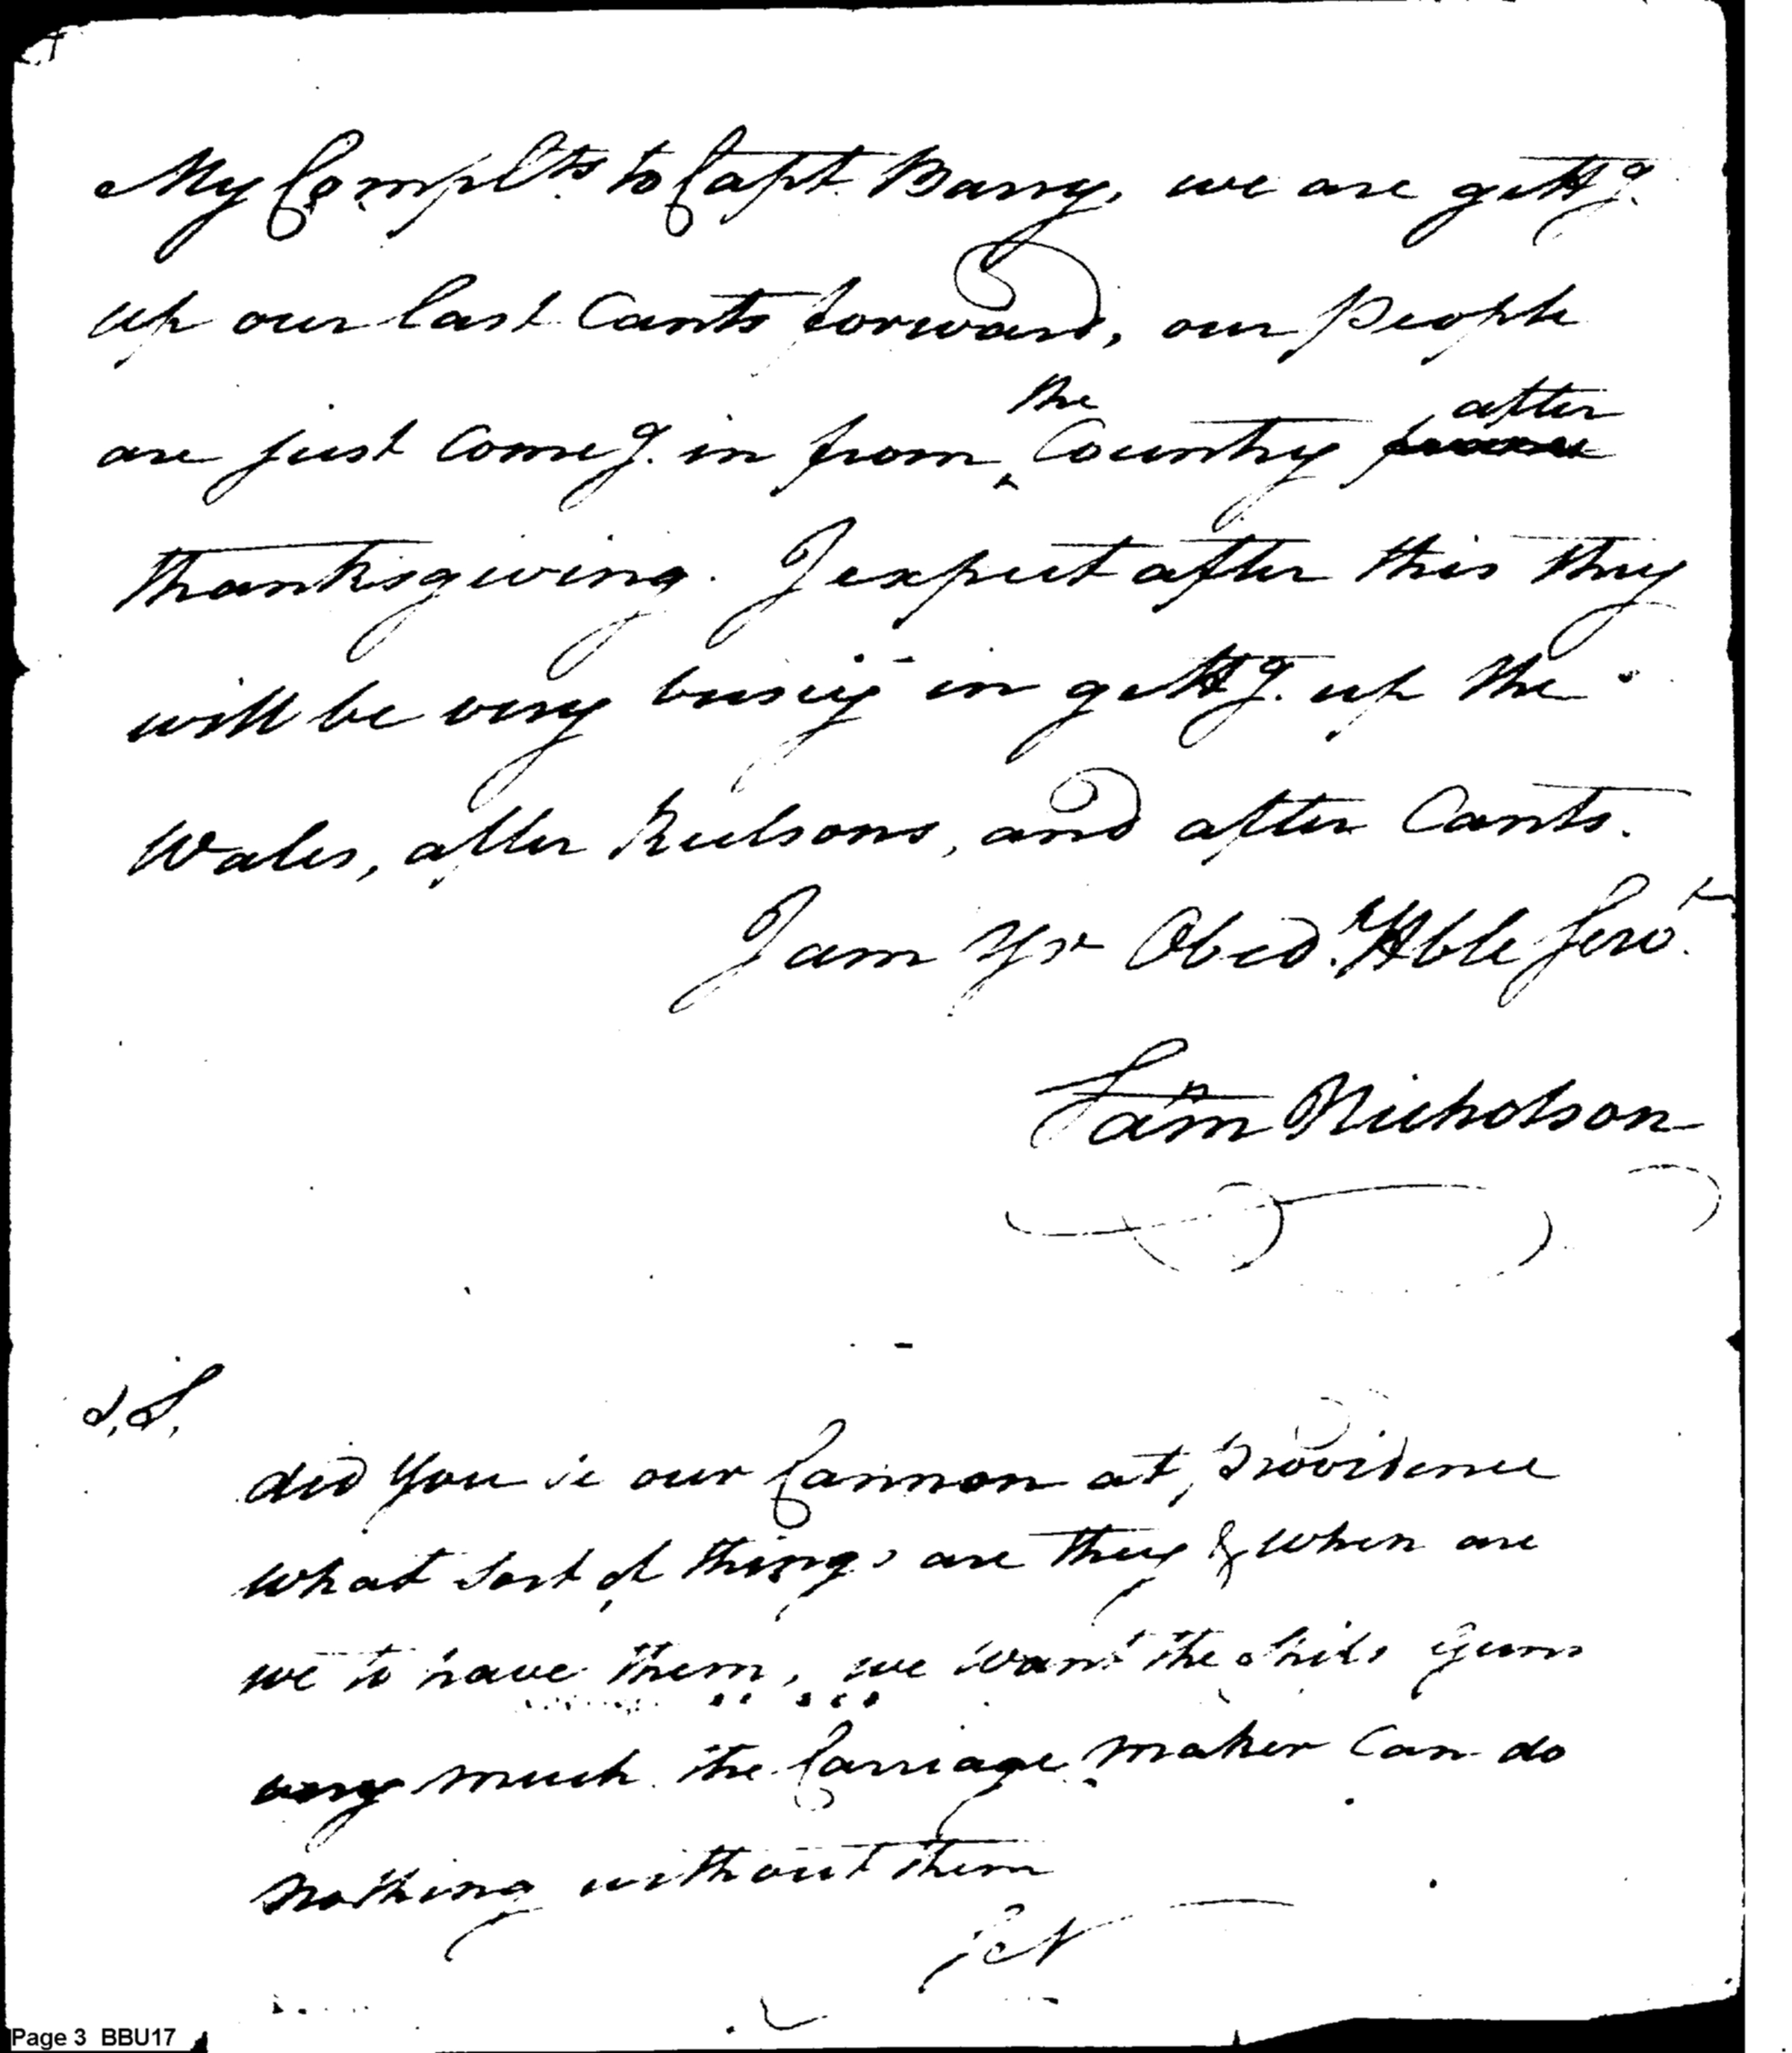 My Complts. to Capt. Barry, we are gettg.
up our last Cants forward, our people
are just Comeg. in from the Country after
thanksgiving. I expect after this they
will be very busiy in gettg. up the
Wales, after Keelsons, and after Cants.
I am Yr Obed. Hble Servt.
Sam Nicholson
P.S.
did You se our Cannon at Providence
what sort of things are they & when are
we to have them, we want the Ships Guns
very much the Carriage maker Can do
Nothing without them
SN
Page 3 BBU17